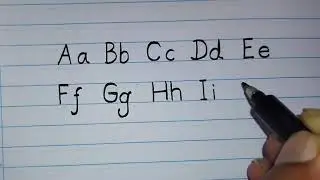 Aa Bb Cc Dd Ee
Ff Gg Hh Ii